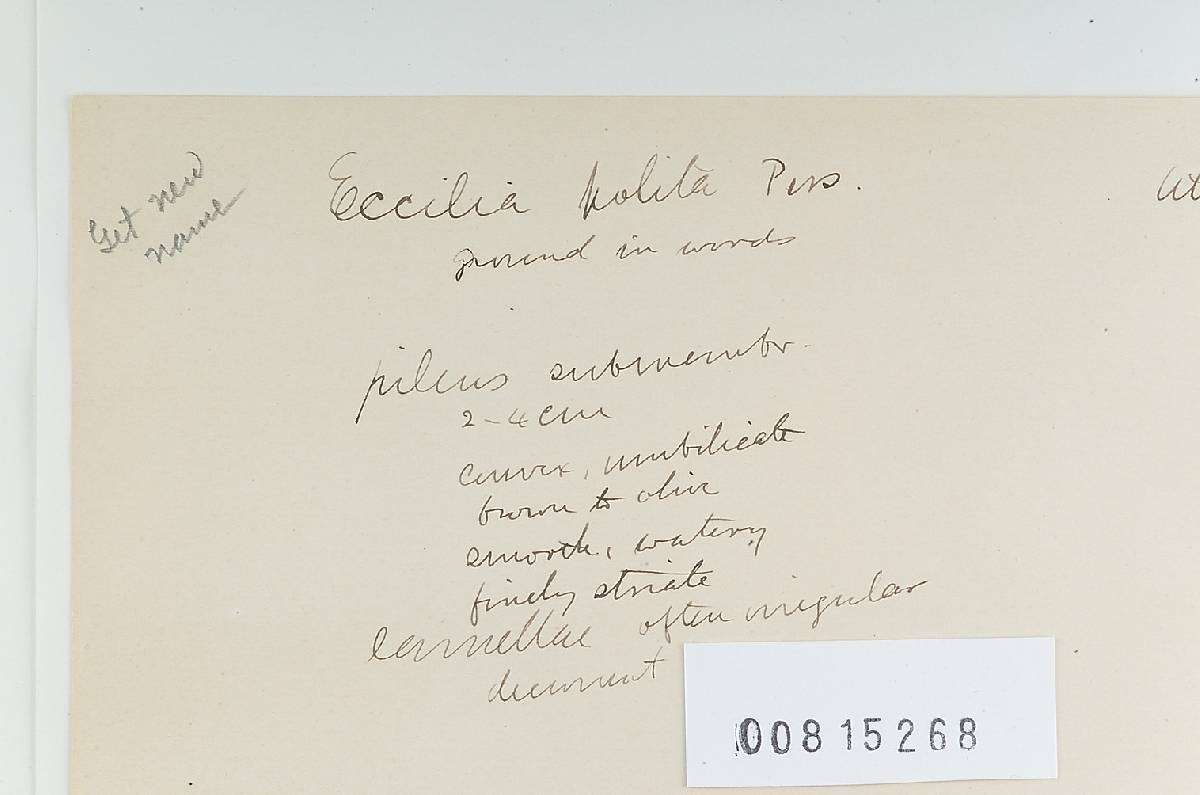 Get new
name
Eccilia polita Pers.
ground in woods
pileus submembr.
2-4 cm
convex, umbilicate
brown to olive
smooth, watery
finely striate
lamellae often irregular
decurrent
00815268